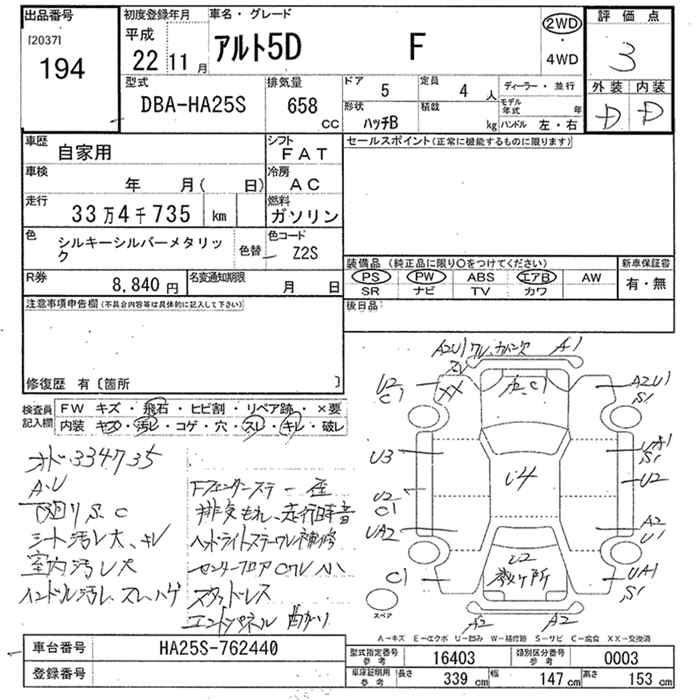 出品番号
[2037]
194
初度登録年月
平成
22 11 月
車名・グレード
アルト5D F
2WD
・
4WD
評価点
3
外装 内装
D D
型式
DBA-HA25S
排気量
658
CC
ドア
5
定員
4 人
形状
ハッチB
積載
kg
ディーラー・並行
モデル年式 年
ハンドル 左・右
車歴
自家用
シフト
FAT
車検
年 月( 日)
冷房
AC
走行
33万4千735 km
燃料
ガソリン
色
シルキーシルバーメタリック
色替
色コード
Z2S
R券
8,840 円
名変通知期限
月 日
セールスポイント(正常に機能するものに限ります)
装備品 (純正品に限り〇をつけてください)
PS PW ABS エアB AW
SR ナビ TV カワ
新車保証書
有・無
後日品:
注意事項申告欄(不具合内容等は具体的に記入して下さい)
修復歴 有〔箇所 〕
検査員記入欄
FW キズ・飛石・ヒビ割・リペア跡・×要
内装 キズ・汚レ・コゲ・穴・スレ・キレ・破レ
オド334735
A.U
下廻りS.C
シート汚レ大、キレ
室内汚レ大
ハンドル汚レ、スレ、ハゲ
Fフェンダーステー歪
排気もれ、走行時音
ヘッドライトステーワレ補修
センターフロアCワレ小
スタッドレス
エンドパネル曲がり
A2U1ワレ、
A1
U2
C1
XX
A2、C1
A2U1
S1
U3
U2
C1
UA2
C1
U4
UA1
S1
U2
A2
U1
UA1
S1
U2
数ヶ所
A2
A2
スペア
A-キズ E-エクボ U-凹み W-補修跡 S-サビ C-腐食 XX-交換済
車台番号
HA25S-762440
登録番号
型式指定番号
参考
16403
類別区分番号
参考
0003
車庫証明用
参考
長さ
339 cm
幅
147 cm
高さ
153 cm